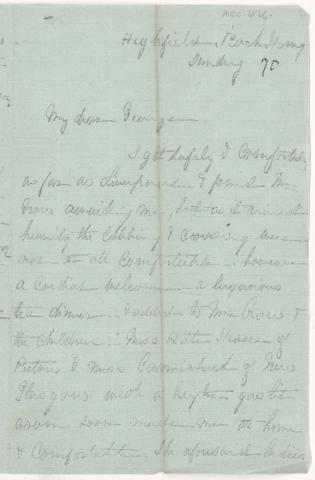 Highfield. Rock Ferry
Sunday 70
My dear George
I got safely & comfortably
as far as Liverpool & found Mr.
Crow awaiting me, but as it rained
heavily the cabbing & crossing was
not at all comfortable. however
a cordial welcome. a luxurious
tea dinner. & added to Mrs Crow &
the children. Miss Kate Fraser of
Pictou & Miss Carmichael of New
Glasgow with a bright gas lit
room soon made me at home
& comfortable. The aforesaid ladies